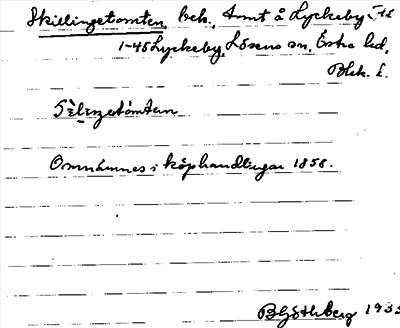 Skillingetomten, beb., Tomt å Lyckeby
1-45 Lyckeby, Lösens sn, Östra hd,
Blek. l.
Omnämnes i köphandlingar 1855.
B Göthberg 193